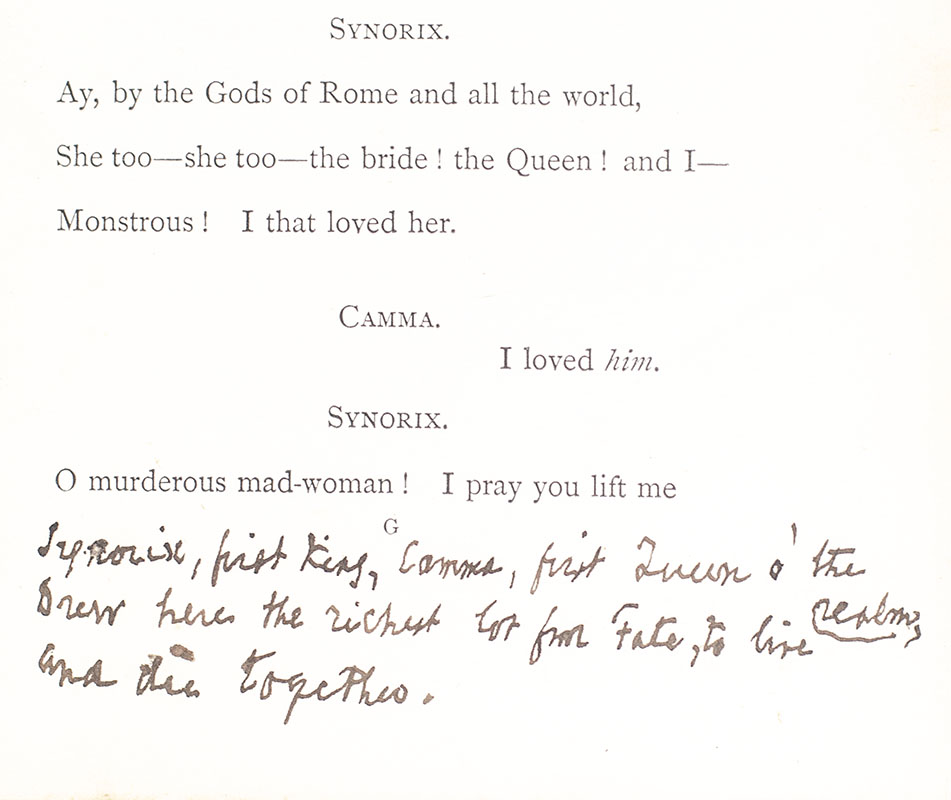 SYNORIX.
Ay, by the Gods of Rome and all the world,
She too—she too—the bride! the Queen! and I—
Monstrous! I that loved her.
CAMMA.
I loved him.
SYNORIX.
O murderous mad-woman! I pray you lift me
G
Synorix, first King, Camma, first Queen o' the
Drew here the richest lot from Fate, to live realm,
and die together.